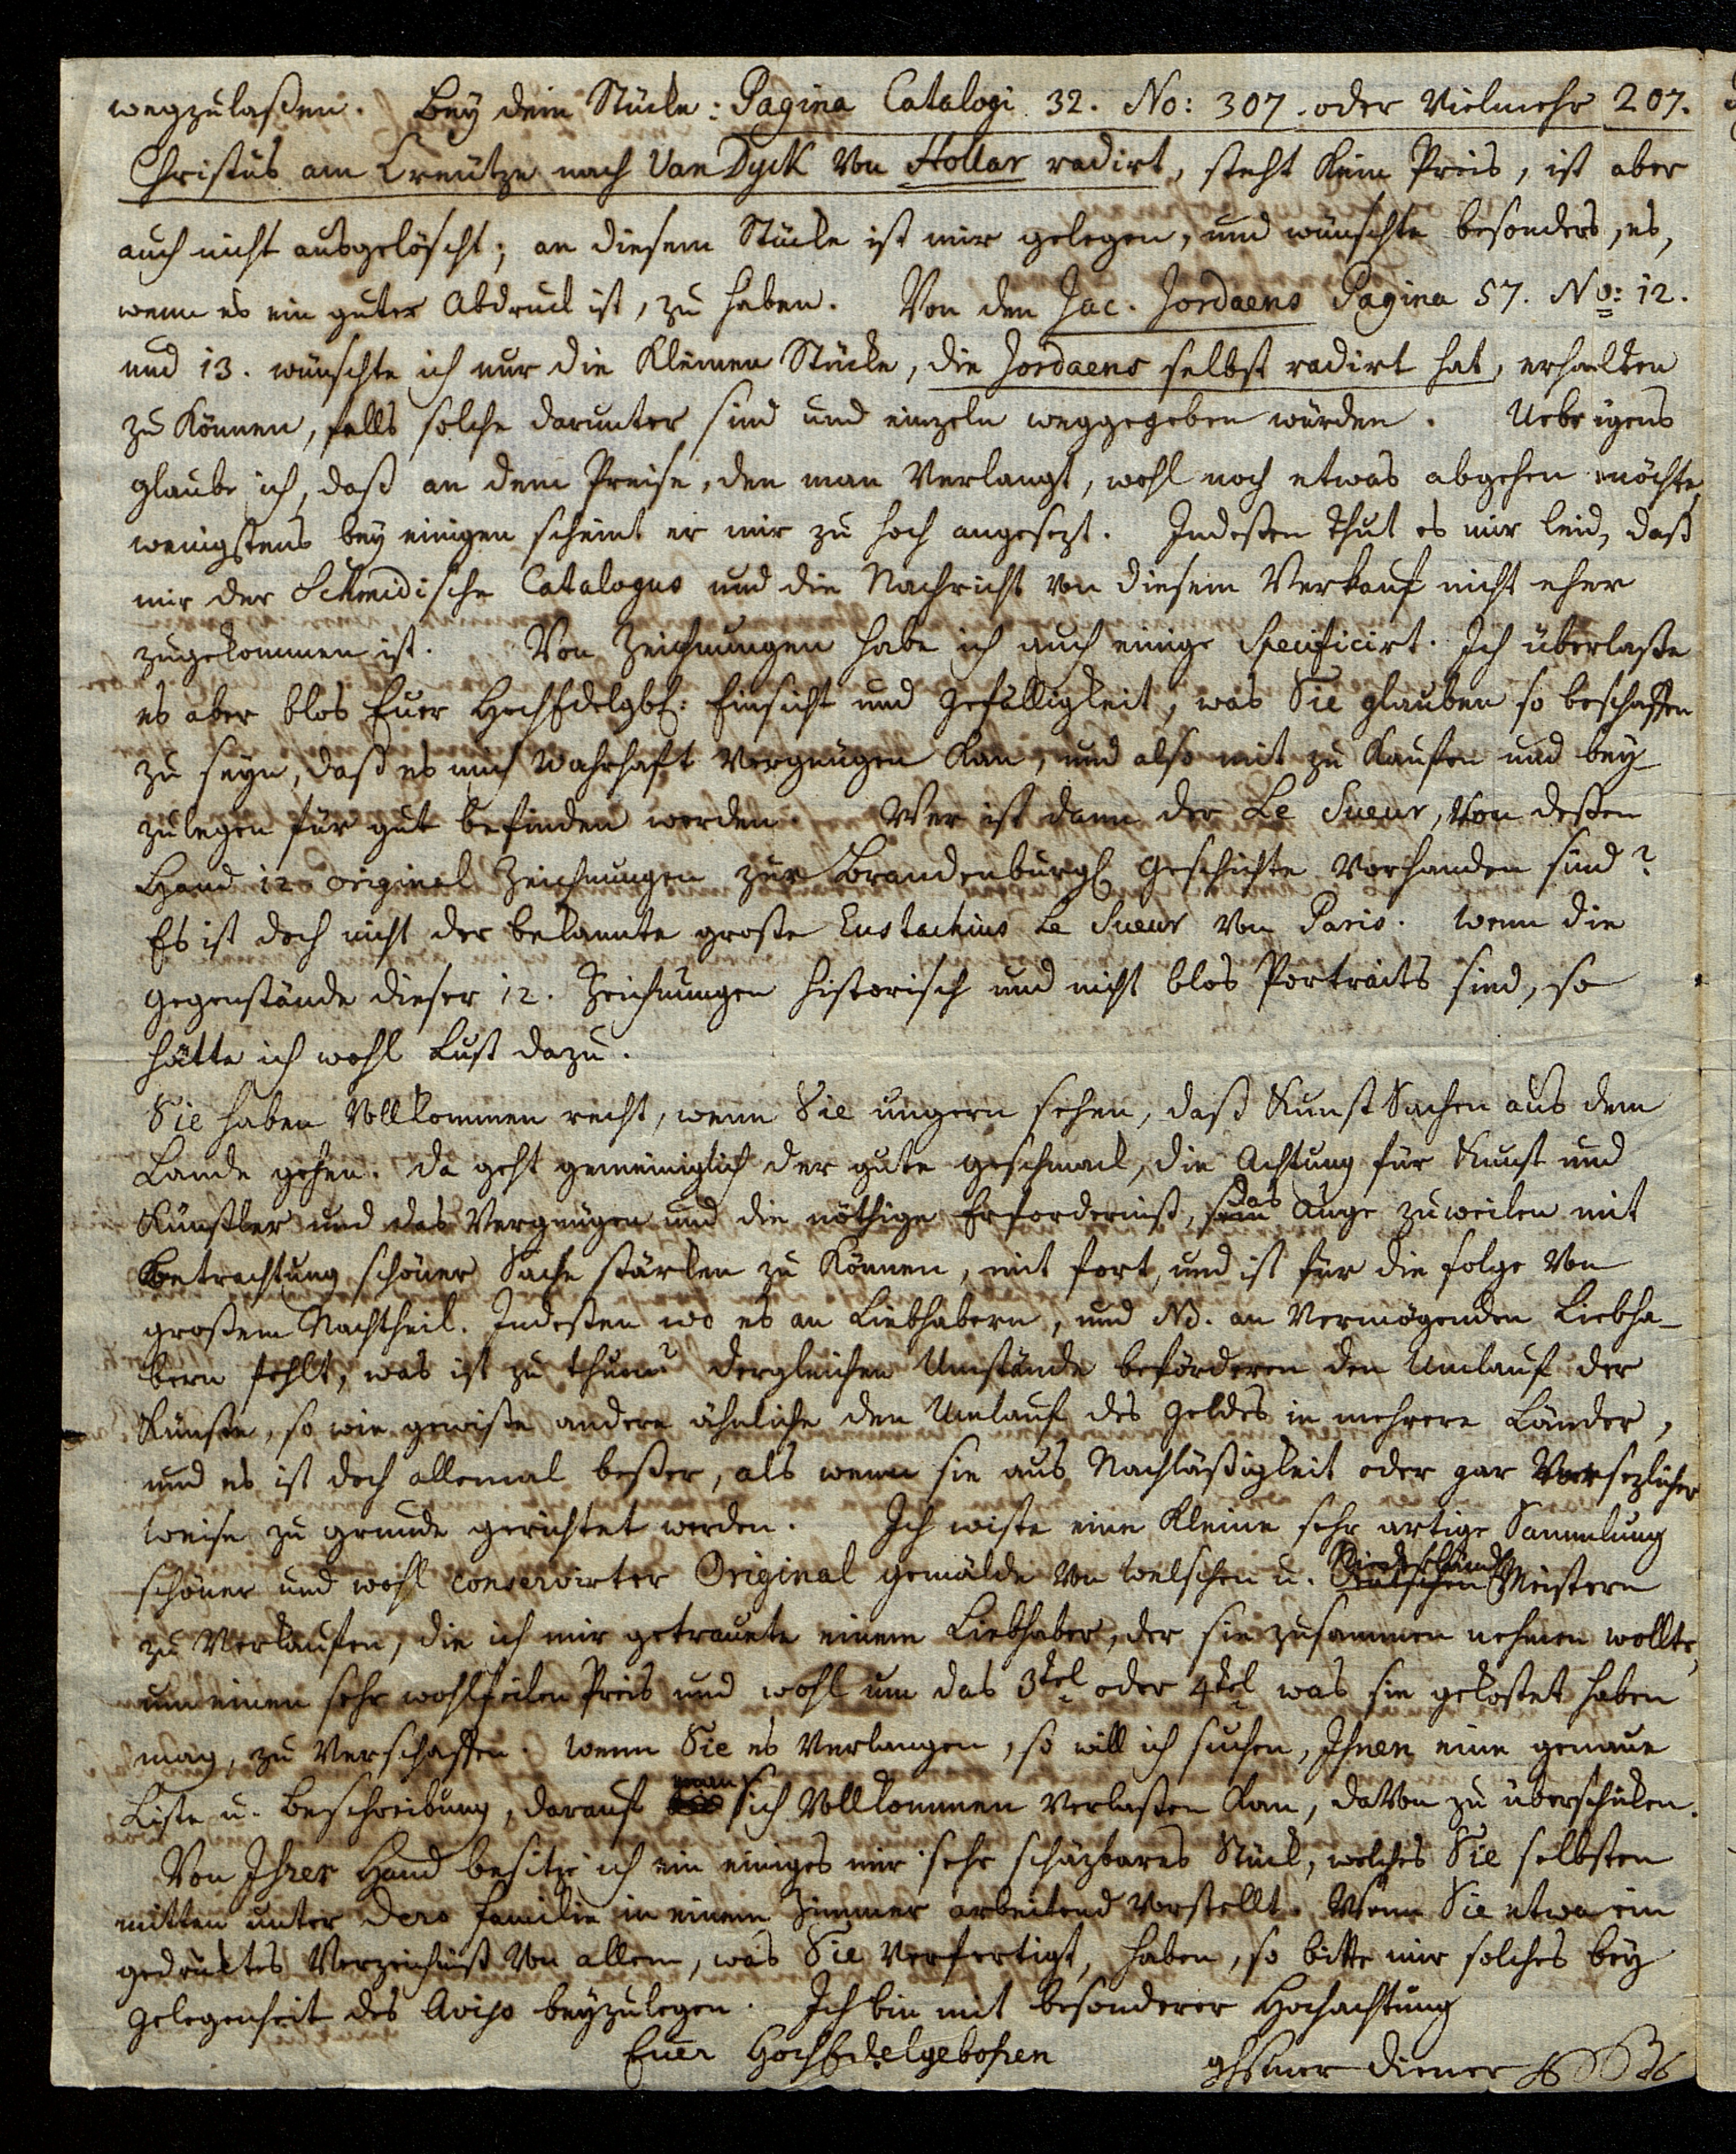 wegzulaßen. Bey dem Stücke: Pagina Catalogi 32. No: 307. oder vielmehr 207.
Christus am Creutze nach Van Dyck von Hollar radirt, steht kein Preis, ist aber
auch nicht ausgelöscht; an diesem Stücke ist mir gelegen, und wünschte besonders, es,
wenn es ein guter Abdruck ist, zu haben. Von den Jac. Jordaens Pagina 57. No: 12.
und 13. wünschte ich nur die kleinen Stücke, die Jordaens selbst radirt hat, erhalten
zu können, falls solche darunter sind und einzeln weggegeben würden. Uebrigens
glaube ich, daß an dem Preise, den man verlangt, wohl noch etwas abgehen möchte,
wenigstens bey einigen scheint er mir zu hoch angesezt. Indeßen thut es mir leid, daß
mir der Schmidische Catalogus und die Nachricht von diesem Verkauf nicht eher
zugekommen ist. Von Zeichnungen habe ich auch einige specificirt. Ich überlaße
es aber blos Euer HochEdelgbh: Einsicht und Gefälligkeit, was Sie glauben so beschaffen
zu seyn, daß es mich wahrhaft vergnügen kan, und also mit zu kaufen und bey
zulegen für gut befinden werden. Wer ist dann der Le Sueur, von deßen
Hand 12 original Zeichnungen zur Brandenburgl. Geschichte vorhanden sind?
Es ist doch nicht der bekannte große Eustachius Le Sueur von Paris. Wenn die
Gegenstände dieser 12. Zeichnungen historisch und nicht blos Portraits sind, so
hätte ich wohl Lust dazu.
Sie haben vollkommen recht, wenn Sie ungern sehen, daß Kunst Sachen aus dem
Lande gehen. Da geht gemeiniglich der gute Geschmack, die Achtung für Kunst und
Künstler und das Vergnügen und die nöthige Erforderniß, das Auge zuweilen mit
Betrachtung schöner Sache stärken zu können, mit fort, und ist für die Folge von
großem Nachtheil. Indeßen wo es an Liebhabern, und NB. an vermögenden Liebha-
bern fehlt, was ist zu thun? dergleichen Umstände beförderen den Umlauf der
Künste, so wie gewiße andere ähnliche den Umlauf des Geldes in mehrere Länder,
und es ist doch allemal beßer, als wenn sie aus Nachläßigkeit oder gar vorsezlicher
Weise zu grunde gerichtet werden. Ich wiste eine kleine sehr artige Sammlung
schöner und wohl conservirter Original gemälde von welschen u. Niederländ. Meistern
zu verkaufen, die ich mir getrauete einem Liebhaber, der sie zusammen nehmen wollte,
um einen sehr wohlfeilen Preis und wohl um das 3tel oder 4tel was sie gekostet haben
mag, zu verschaffen. Wenn Sie es verlangen, so will ich suchen, Ihnen eine genaue
Liste u. Beschreibung, darauf man sich vollkommen verlaßen kan, davon zu überschicken.
Von Ihrer Hand besitze ich ein einiges mir sehr schäzbares Stück, welches Sie selbsten
mitten unter Dero Familie in einem Zimmer arbeitend vorstellt. Wenn Sie etwa ein
gedruktes Verzeichniß von allem, was Sie verfertigt, haben, so bitte mir solches bey
Gelegenheit des Aviso beyzulegen. Ich bin mit besonderer Hochachtung
Euer HochEdelgebohren
Diener